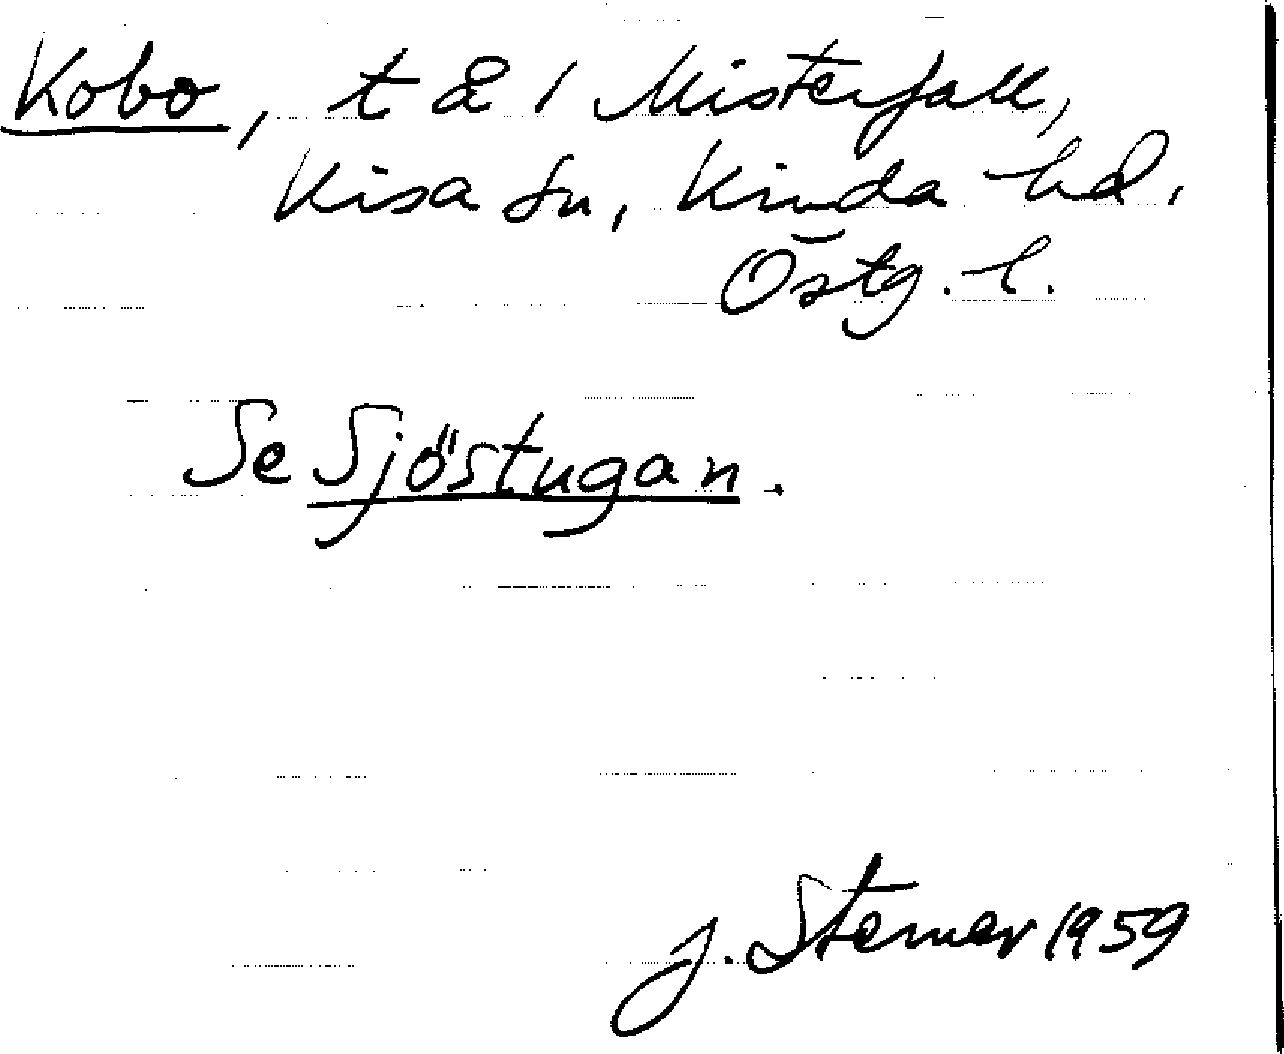 Kobo, t å 1 Misterfall,
Kisa sn, Kinda hd,
Östg. l.
Se Sjöstugan.
J. Sterner 1959